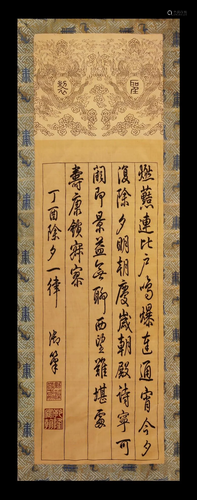 燃連比户鳴爆達通宵今夕
復除夕明朝慶歲朝殿詩寧可
闕即景益無聊西望難堪處
壽康鎖寂寥
丁酉除夕一律 御筆